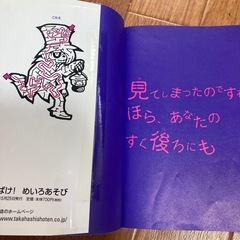 見てしまったのですね
ほら、あなたの
すぐ後ろにも
ばけ！ めいろあそび
5月25日発行 定価：本体700円(税別)
のホームページ
www.takahashishoten.co.jp/